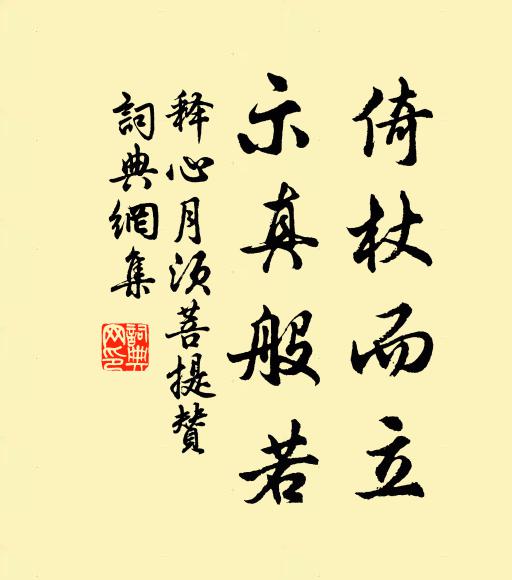 倚杖而立
示真般若
释心月须菩提赞
詞典網集
詞典网印